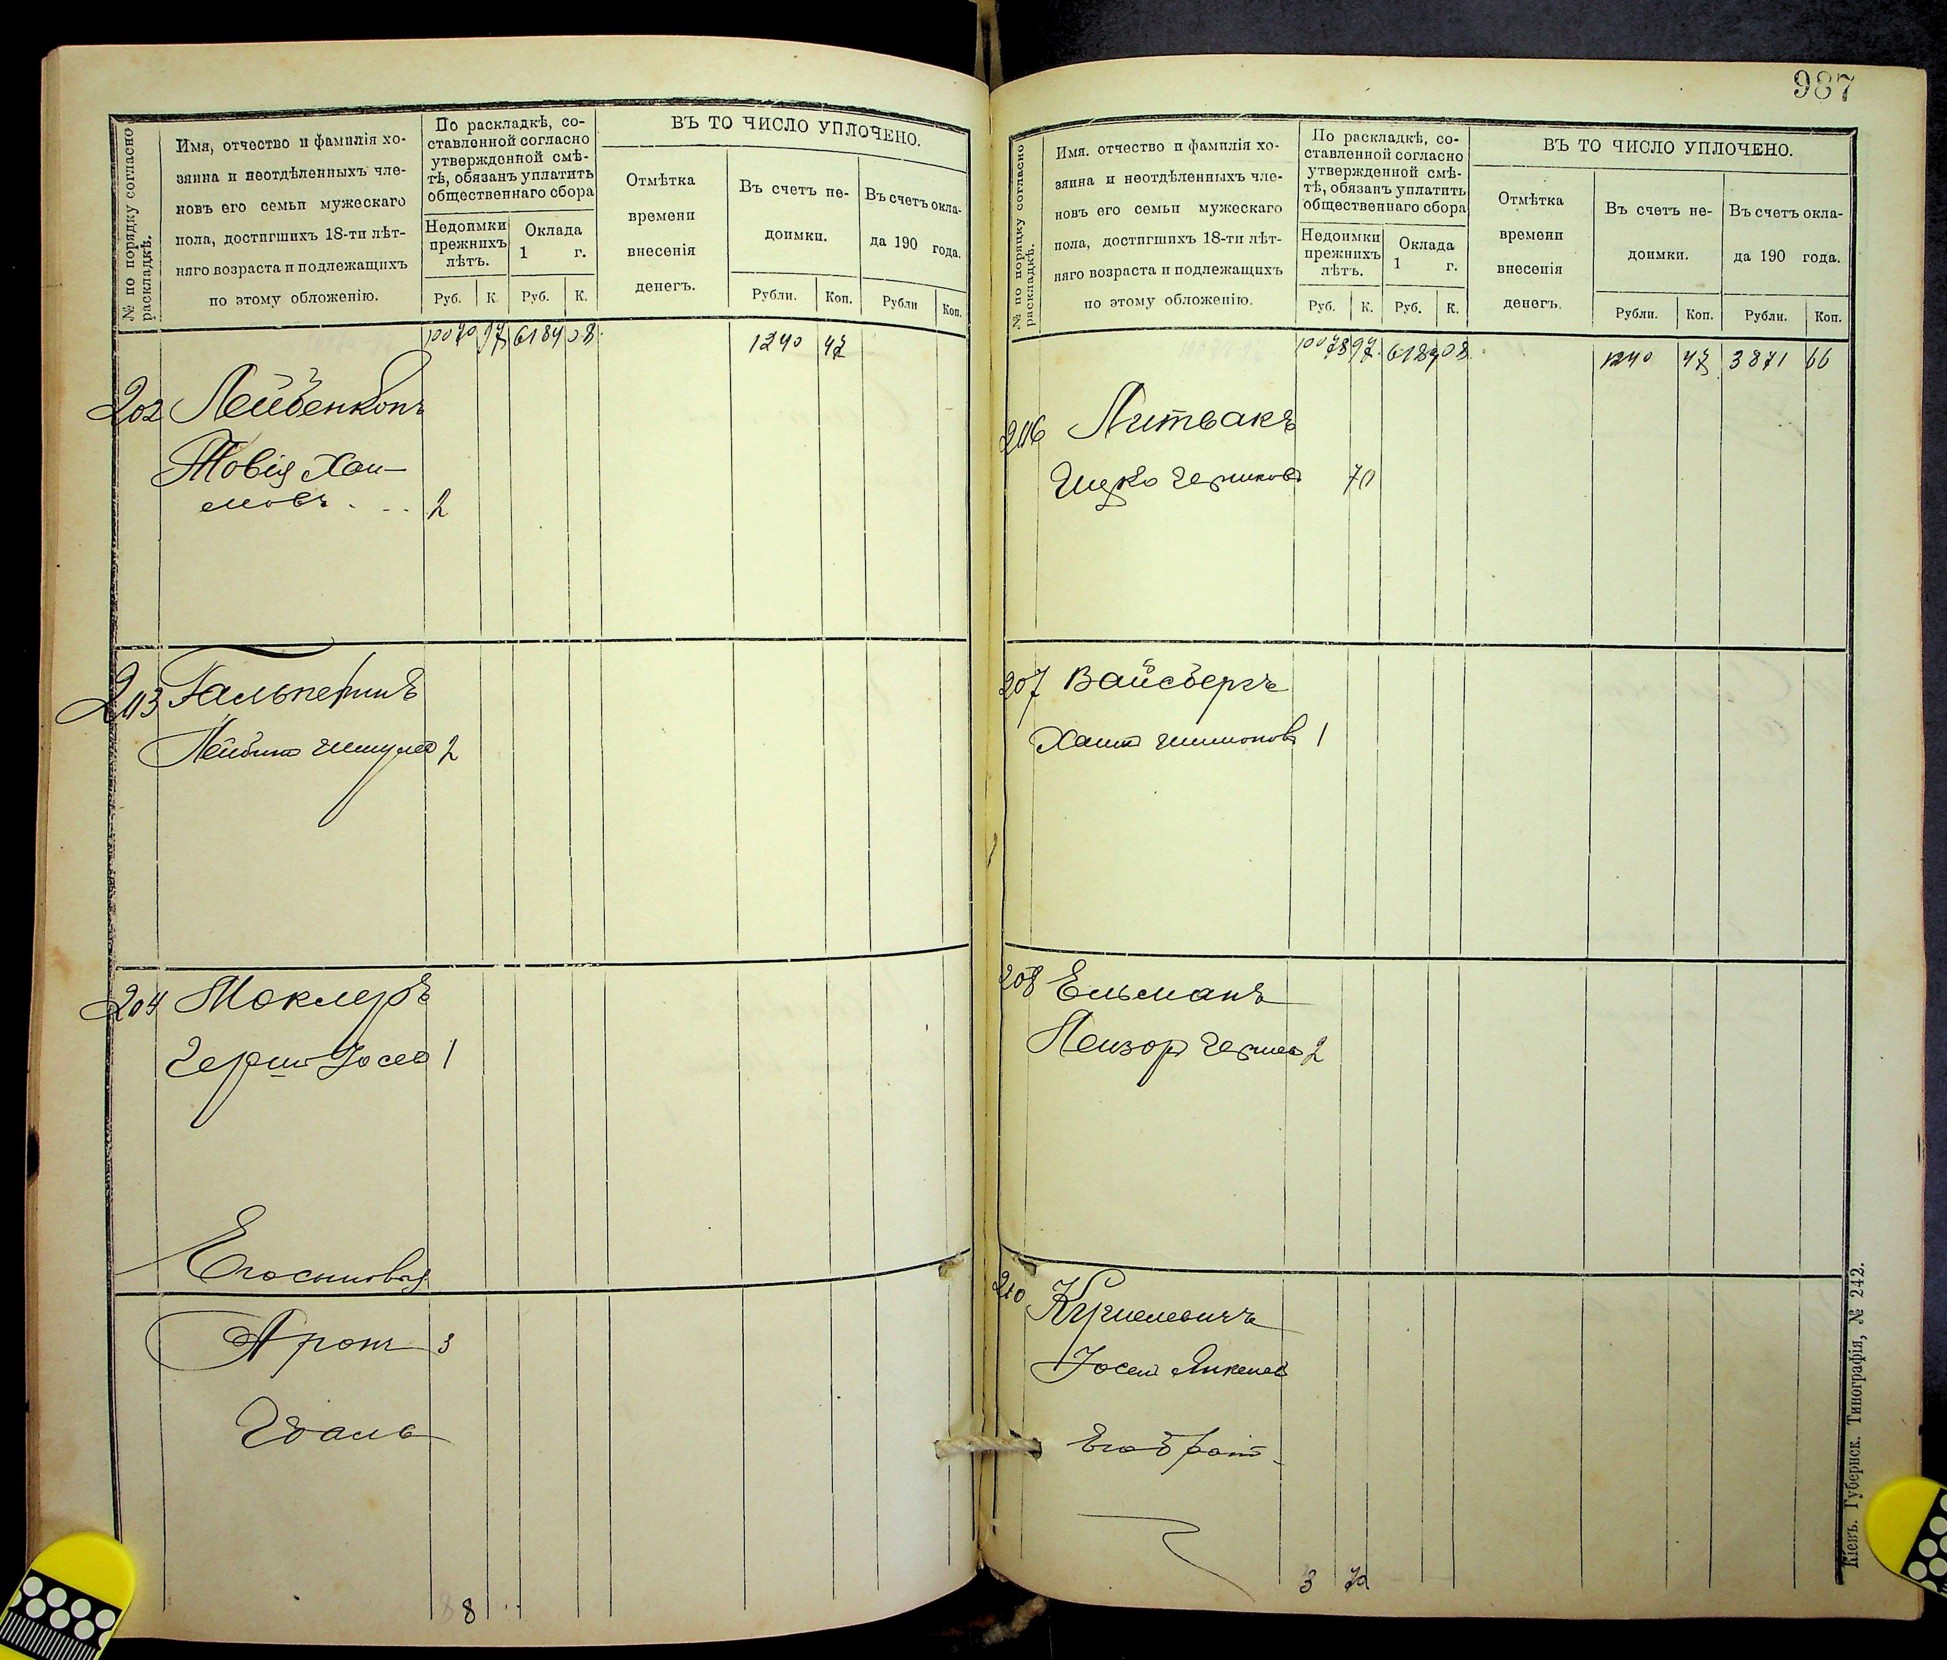 № по порядку согласно раскладкѣ.
Имя, отчество и фамилія хо-
зяина и неотдѣленныхъ чле-
новъ его семьи мужескаго
пола, достигшихъ 18-ти лѣт-
няго возраста и подлежащихъ
по этому обложенію.
По раскладкѣ, со-
ставленной согласно
утвержденной смѣ-
тѣ, обязанъ уплатить
общественнаго сбора
Недоимки
прежнихъ
лѣтъ.
Оклада
1 г.
Руб. К. Руб. К.
ВЪ ТО ЧИСЛО УПЛОЧЕНО.
Отмѣтка
времени
внесенія
денегъ.
Въ счетъ не-
доимки.
Рубли. Коп.
Въ счетъ окла-
да 190 года.
Рубли Коп.
97 6184 08 1240 47
202 Лейбенконъ
Товія Хаи-
мовъ 2
203 Гальперинъ
2
204 Моклеръ
Герш Іосев 1
Его сыновья
Арон 3
8
987
№ по порядку согласно раскладкѣ.
Имя. отчество и фамилія хо-
зяина и неотдѣленныхъ чле-
новъ его семьи мужескаго
пола, достигшихъ 18-ти лѣт-
няго возраста и подлежащихъ
по этому обложенію.
По раскладкѣ, со-
ставленной согласно
утвержденной смѣ-
тѣ, обязанъ уплатить
общественнаго сбора
Недоимки
прежнихъ
лѣтъ.
Оклада
1 г.
Руб. К. Руб. К.
ВЪ ТО ЧИСЛО УПЛОЧЕНО.
Отмѣтка
времени
внесенія
денегъ.
Въ счетъ не-
доимки.
Рубли. Коп.
Въ счетъ окла-
да 190 года.
Рубли. Коп.
10078 97 6184 08 1240 47 3871 66
206 Литвакъ
Ицко 70
207 Вайсбергъ
Хаим Шимонов 1
208 Ельманъ
Лейзор Гершев 2
210
Іосел Янкелев
Его брат
3 70
Кіевъ. Губернск. Типографія, № 242.